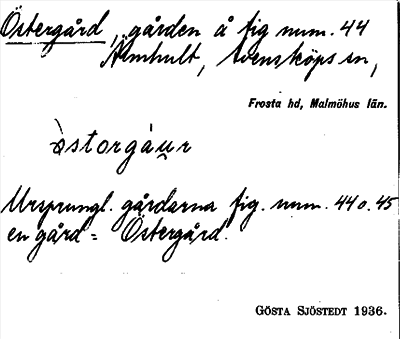 Östergård, gården å fig num. 44
Älmhult, Svensköps sn,
Frosta hd, Malmöhus län.
östorgáu̯r
Ursprungl. gårdarna fig. num. 44 o. 45
en gård = Östergård.
GÖSTA SJÖSTEDT 1936.